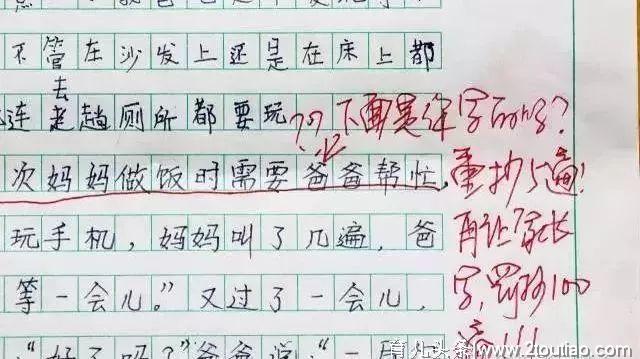 不管在沙发上还是在床上都
去
连趟厕所都要玩
??下面
次妈妈做饭时需要爸爸帮忙,
玩手机，妈妈叫了几遍，爸
等一会儿。”又过了一会儿，
“好了吗？”爸爸说：“一
重抄
遍！
再让家长
字，罚抄100
遍!!!
育儿头条 www.2toutiao.com